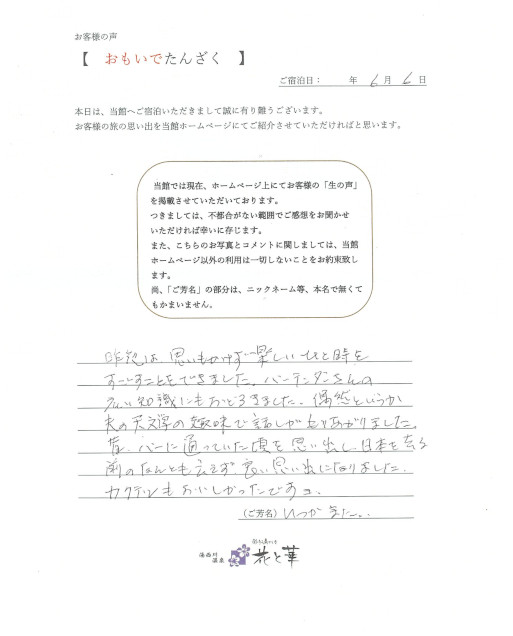 お客様の声
【 おもいでたんざく 】
ご宿泊日： 年 6月 6日
本日は、当館へご宿泊いただきまして誠に有り難うございます。
お客様の旅の思い出を当館ホームページにてご紹介させていただければと思います。
当館では現在、ホームページ上にてお客様の「生の声」
を掲載させていただいております。
つきましては、不都合がない範囲でご感想をお聞かせ
いただければ幸いに存じます。
また、こちらのお写真とコメントに関しましては、当館
ホームページ以外の利用は一切しないことをお約束致し
ます。
尚、「ご芳名」の部分は、ニックネーム等、本名で無くて
もかまいません。
昨晩は、思いもかけず楽しいひと時を
すごすことをできました。バーテンダーさんの
広い知識にもおどろきました。偶然というか
夫の天文学の趣味で話しがもりあがりました。
昔、バーに通っていた頃を思い出し、日本を去る
前のなんとも言えず良い思い出になりました。
カクテルもおいしかったですヨ。
（ご芳名）いつかまた..
湯西川
温泉
花と華